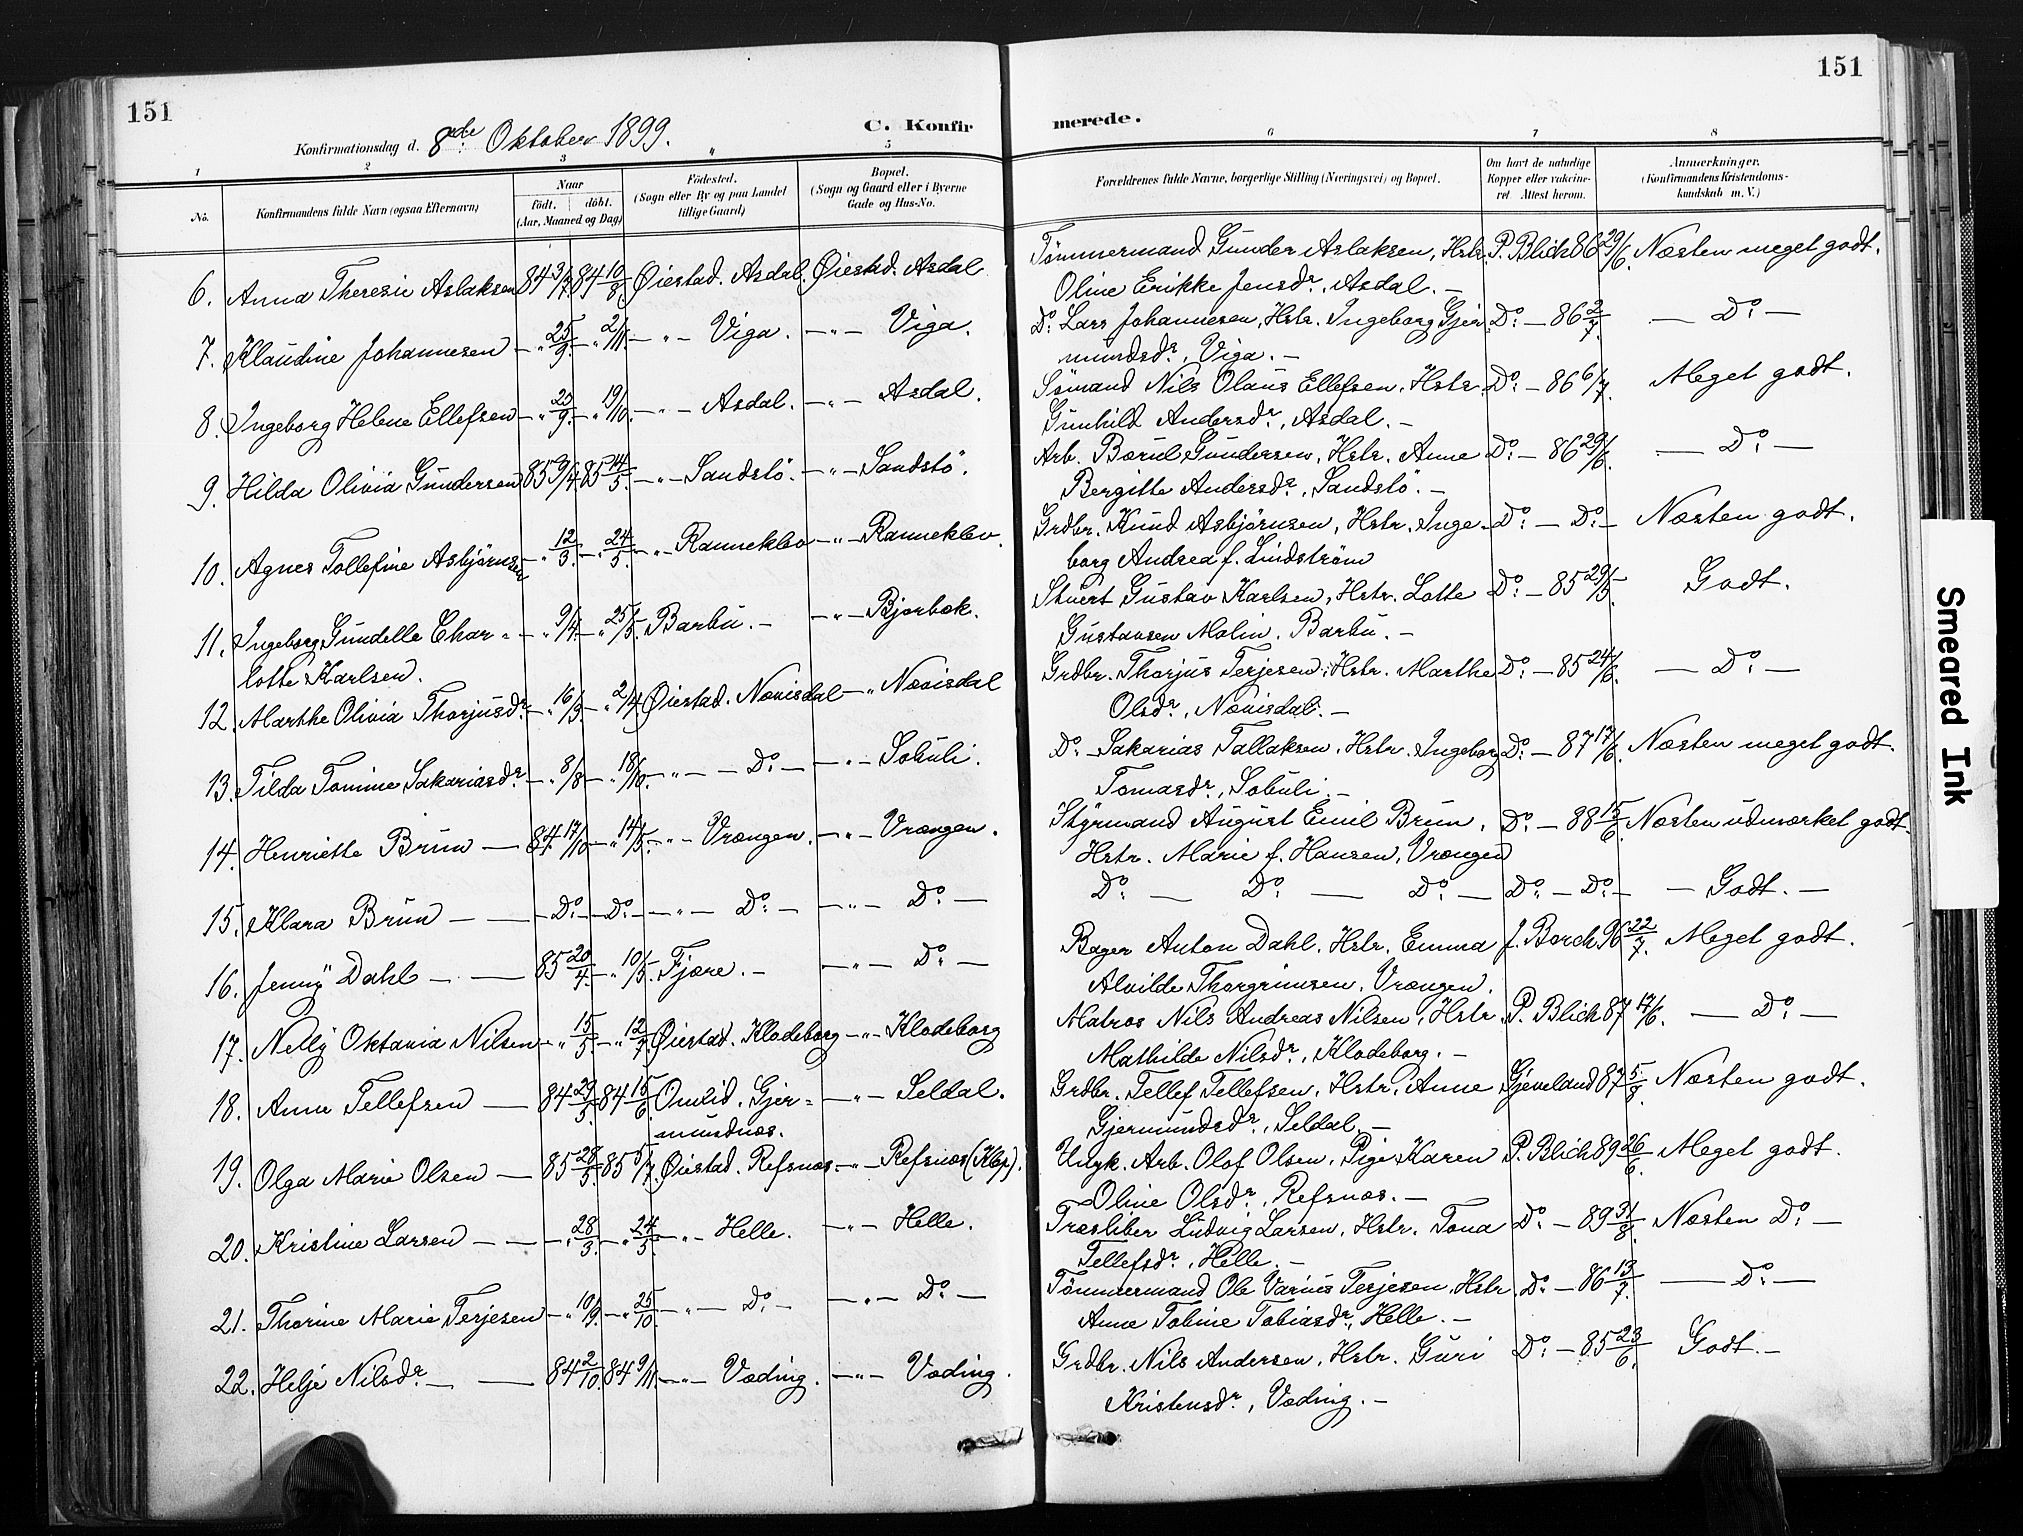 151
151
Konfirmationsdag d. 8de Oktober 1899.
C. Konfirmerede.
1 2 3 " 5 6 7 8
No. Konfirmandens fulde Navn (ogsaa Efternavn) Naar født. døbt. (Aar, Maaned og Dag) Fødested. (Sogn eller By og paa Landet tillige Gaard) Bopæl. (Sogn og Gaard eller i Byerne Gade og Hus-No. Forældrenes fulde Navne, borgerlige Stilling (Næringsvei) og Bopæl. Om havt de naturlige Kopper eller vaccineret Attest herom. Anmærkninger. (Konfirmandens Kristendomskundskab m. V.)
6. Anna Theresie Aslaksen 84 3/7 84 10/8 Øiestad. Asdal. Øiestad. Asdal Tømmermand Gunder Aslaksen, Hstr. P. Blich 86 29/6. Næsten meget godt.
Oline Erikke Jensdr., Asdal. —
7. Klaudine Johannesen — " 25/9. — " 2/11. — " — Viga. — " — Viga. Do. Lars Johannesen, Hstr. Ingeborg Gjer- Do: — 86 2/7. — Do: —
mundsdr., Viga. —
8. Ingeborg Helene Ellefsen — " 20/9. — " 19/10. — " — Asdal. — " — Asdal. Sømand Nils Olaus Ellefsen, Hstr. Do: — 86 6/7. Meget godt.
Gunhild Andersdr., Asdal. —
9. Hilda Olivia Gundersen 85 9/4 85 14/5. — " — Sandstö. — " — Sandstö. Arb. Børul Gundersen, Hstr. Anne Do: — 86 29/6. — Do: —
Bergitte Andersdr., Sandstö. —
10. Agnes Tollefine Asbjørnsen — " 12/3. — " 24/5. — " — Ranneklev — " — Ranneklev. Grdbr. Knud Asbjørnsen, Hstr. Inge- Do: — Do: — Næsten godt.
borg Andrea f. Lindström
11. Ingeborg Gundelle Char- — " 9/4. — " 25/5. Barbu. — — " — Bjorbæk. Stuert Gustav Karlsen, Hstr. Lotte Do: — 85 29/5. Godt.
lotte Karlsen. Gustavsen Malin. Barbu. —
12. Marthe Olivia Thorjusdr. — " 16/3. — " 2/4. Øiestad. Nævisdal — " Nævisdal Grdbr. Thorjus Terjesen, Hstr. Marthe Do: — 85 24/6. — Do: —
Olsdr., Nævisdal. —
13. Tilda Tomine Sakariasdr. — " 8/8 — " 18/10. — " — — Do: — — " — Soluli. Do. — Sakarias Tallaksen. Hstr. Ingeborg Do: — 87 17/6. Næsten meget godt.
Tomasdr., Soluli. —
14. Henriette Brun — 84 17/10 — " 14/5. — " — Vrængen. — " — Vrængen. Styrmand August Emil Brun, Do: — 88 15/6. Næsten udmærket godt.
Hstr. Marie f. Hansen, Vrængen
15. Klara Brun — — — Do: — — Do: — — " — Do: — — " — Do: — Do: — Do: — Do: — Do: — Do: — — Godt. —
16. Jenny Dahl — — 85 20/4. — " 10/5. Fjære. — — " — Do: — Bager Anton Dahl. Hstr. Emma f. Borch 96 22/7. Meget godt.
Alvilde Thorgrimsen, Vrængen.
17. Nelly Oktavia Nilsen — " 15/5. — " 12/7. Øiestad. Klodeborg — " — Klodeborg Matros Nils Andreas Nilsen, Hstr. P. Blich 87 17/6. — Do: —
Mathilde Nilsdr., Klodeborg. —
18. Anne Tellefsen — 84 29/5. 84 15/6 Omlid. Gjer- — " — Seldal. Grdbr. Tellef Tellefsen, Hstr. Anne Gjeveland 87 5/8. Næsten godt.
mundnæs. Gjermundsdr., Seldal. —
19. Olga Marie Olsen — 85 28/5 85 5/7. Øiestad. Refsnæs — " — Refsnæs (Klep). Ungk. Arb. Olof Olsen, Pige Karen P. Blich 89 26/6. Meget godt.
Oline Olsdr., Refsnæs. —
20. Kristine Larsen — — — " 28/3. — " 24/5. — " — Helle. — " — Helle. Træsliber Ludvig Larsen, Hstr. Tona Do: — 89 31/8. Næsten Do: —
Tellefsdr., Helle. —
21. Thorine Marie Terjesen — " 10/9. — " 25/10. — " — Do: — — " — Do: — Tømmermand Ole Varius Terjesen, Hstr. Do: — 86 13/7. — Do: —
Anne Tobine Tobiasdr., Helle. —
22. Helje Nilsdr. — — 84 2/10. 84 9/11. — " — Væding. — " — Væding. Grdbr. Nils Andersen, Hstr. Guri Do: — 85 23/6. Godt. —
Kristensdr., Væding. —
Smeared Ink